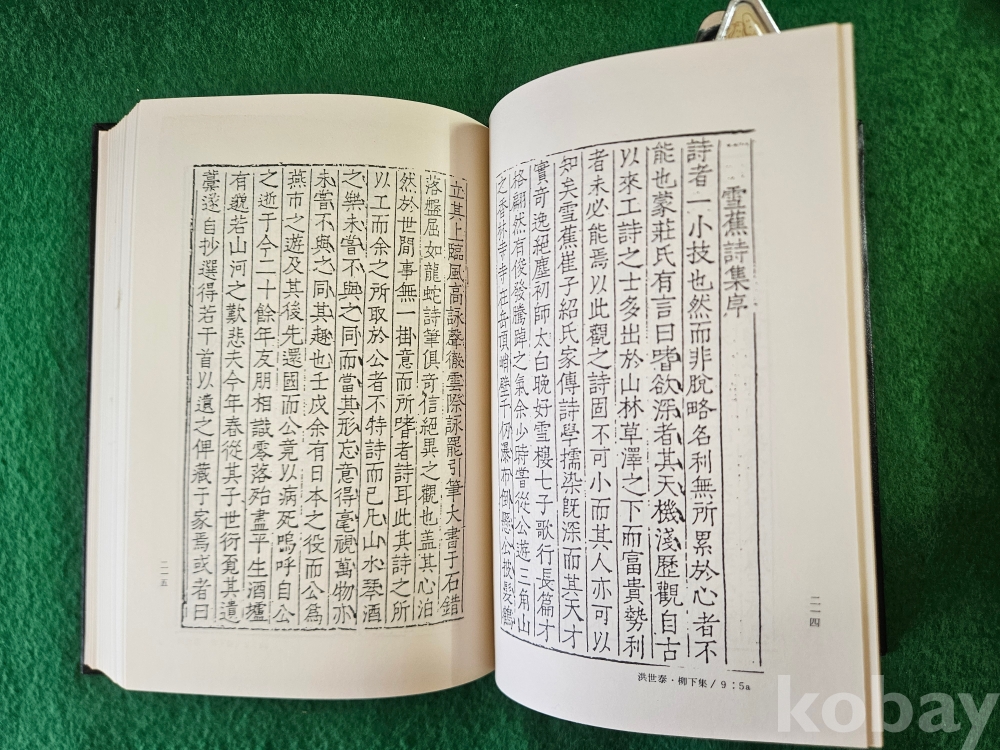 雪蕉詩集序
詩者一小技也然而非脫略名利無所累於心者不
能也蒙莊氏有言曰嗜欲深者其天機淺歷觀自古
以來工詩之士多出於山林草澤之下而富貴勢利
者未必能焉以此觀之詩固不可小而其人亦可以
知矣雪蕉崔子紹氏家傳詩學擩染旣深而其天才
實奇逸絕塵初師太白晚好雪樓七子歌行長篇才
格翩然有俊發騰踔之氣余少時嘗從公遊三角山
之香林寺寺在岳頂峭壁千仞瀑布倒懸公披髮
二一四
洪世泰・柳下集/9:5a
立其上臨風高詠聲徹雲際詠罷引筆大書于石錯
落盤屈如龍蛇詩筆俱奇信絕異之觀也盖其心泊
然於世間事無一掛意而所嗜者詩耳此其詩之所
以工而余之所取於公者不特詩而已凡山水琴酒
之樂未嘗不與之同而當其形忘意得毫視萬物亦
未嘗不與之同其趣也壬戌余有日本之役而公爲
燕市之遊及其後先還國而公竟以病死嗚呼自公
之逝于今二十餘年友朋相識零落殆盡平生酒壚
有邈若山河之歎悲夫今年春從其子世衍覔其遺
藁遂自抄選得若干首以遺之俾藏于家焉或者曰
二一五
kobay